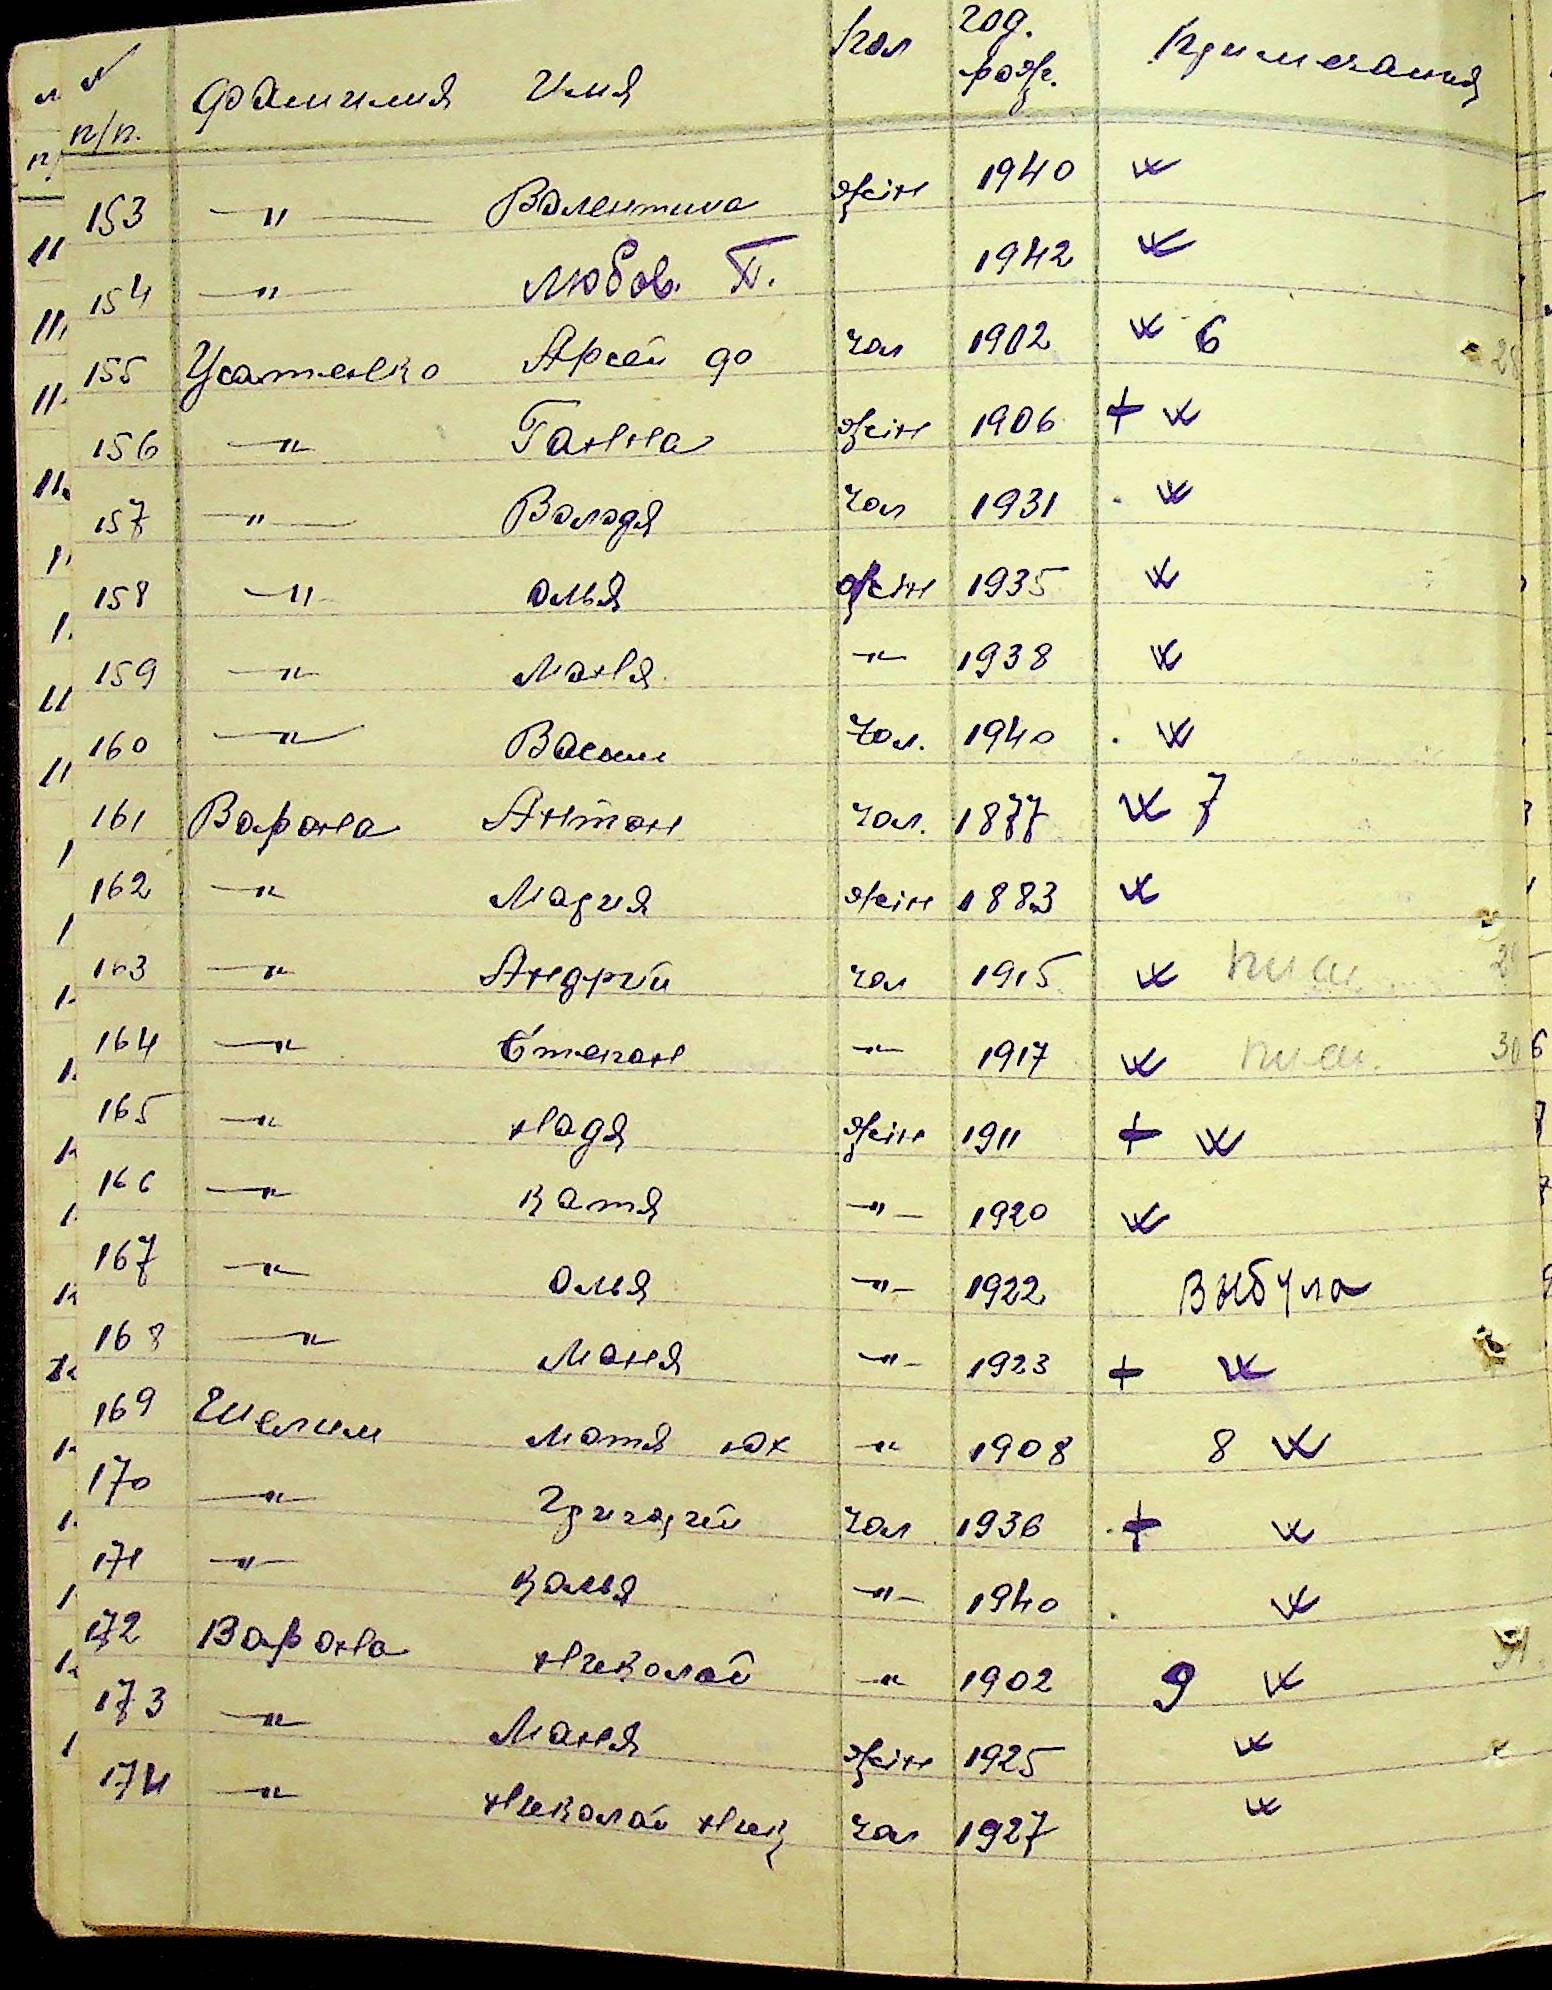 № п/п. Фамилия Имя пол год. рожд. Примечания
153 —"— Валентина жін 1940 W
154 —"— Любов. П. 1942 W
155 Усатенко Арсей до чол 1902 W 6
156 —"— Ганна жін 1906 + W
157 —"— Володя чол 1931 W
158 —"— Олья жін 1935 W
159 —"— Маня —"— 1938 W
160 —"— Васыль чол. 1940 W
161 Варона Антон чол. 1877 W 7
162 —"— Мария жін 1883 W
163 —"— Андрий чол 1915 W
164 —"— Степан —"— 1917 W 30
165 —"— Надя жін 1911 + W
166 —"— Катя —"— 1920 W
167 —"— Олья —"— 1922 Выбула
168 —"— Маня —"— 1923 + W
169 Шелим Мотя юх —"— 1908 8 W
170 —"— Григорий чол 1936 + W
171 —"— Колья —"— 1940 W
172 Варона Николай —"— 1902 9 W
173 —"— Маня жін 1925 W
174 —"— Николай Ник чол 1927 W